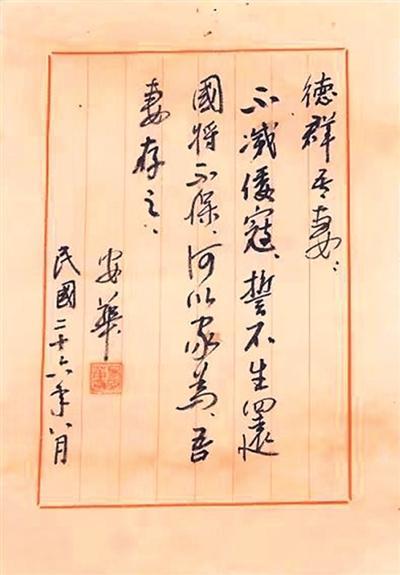 德群吾妻：
不滅倭寇、誓不生還
國將不保、何以家為、吾
妻存之、
安華
民國二十六年八月